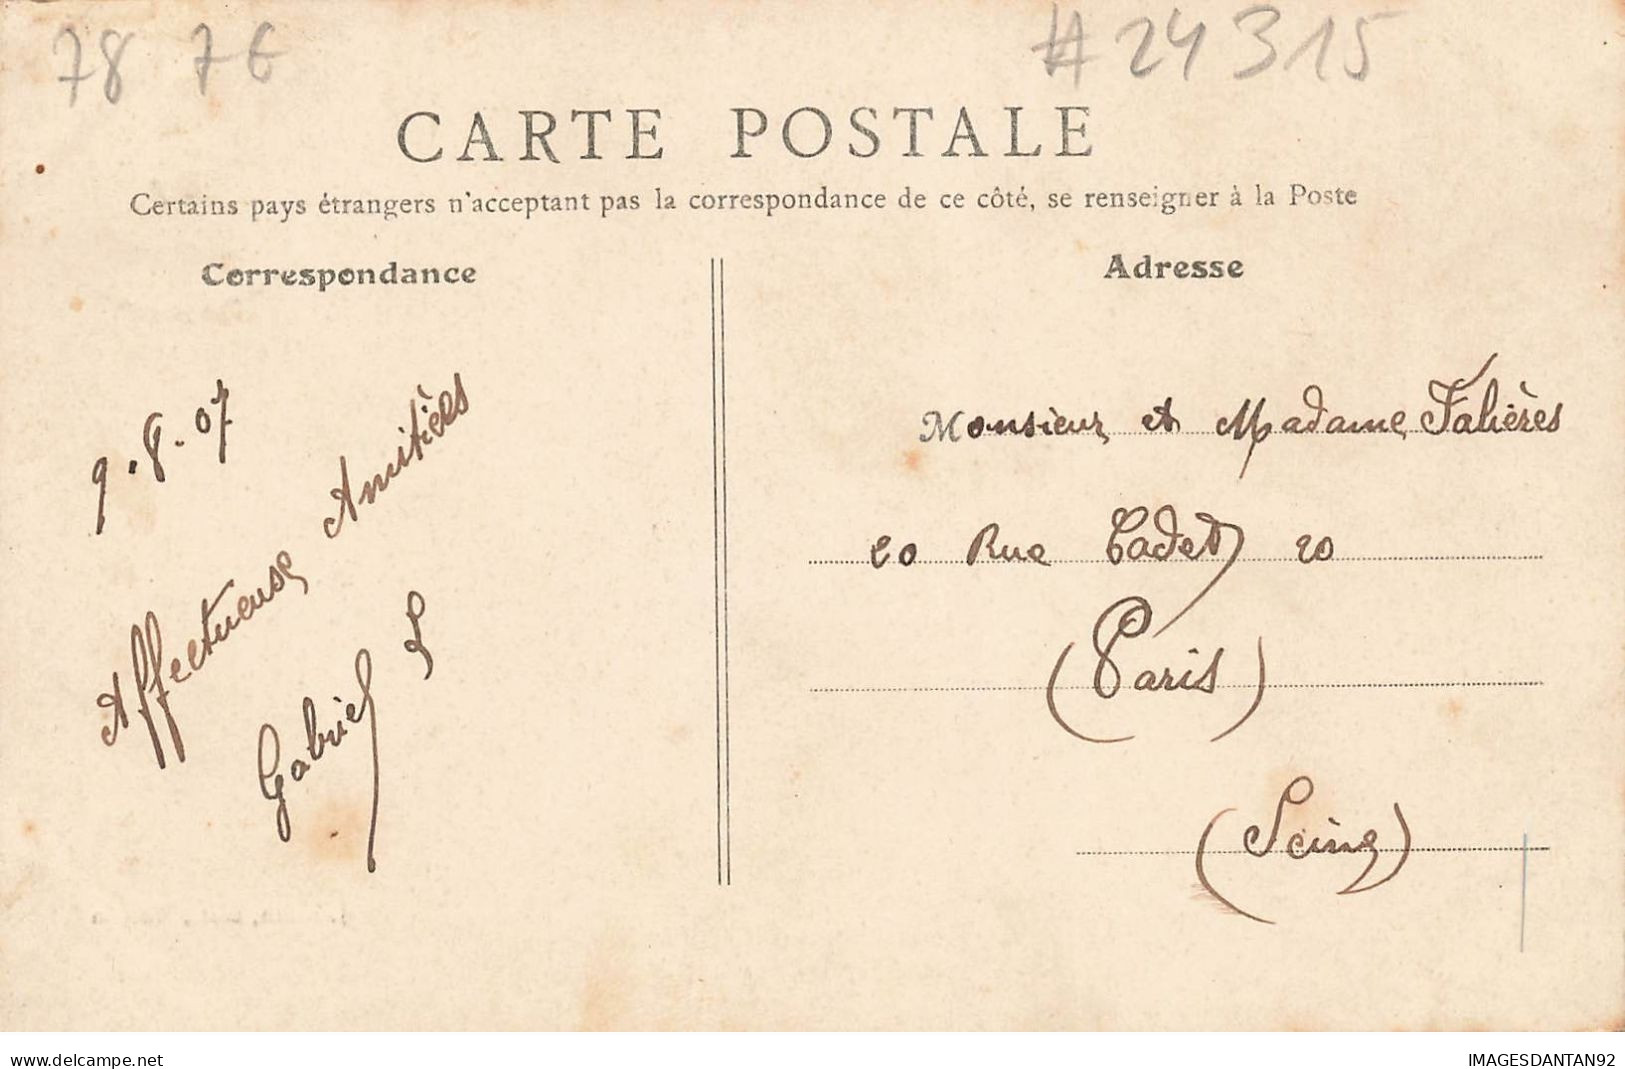 78 7€
#24315
CARTE POSTALE
Certains pays étrangers n'acceptant pas la correspondance de ce côté, se renseigner à la Poste
Correspondance
9.8.07
Affectueuse Amitièes
Gabriel L
Adresse
Monsieur et Madame Falières
20 Rue Cadet 20
(Paris)
(Seine)
www.delcampe.net
IMAGESDANTAN92